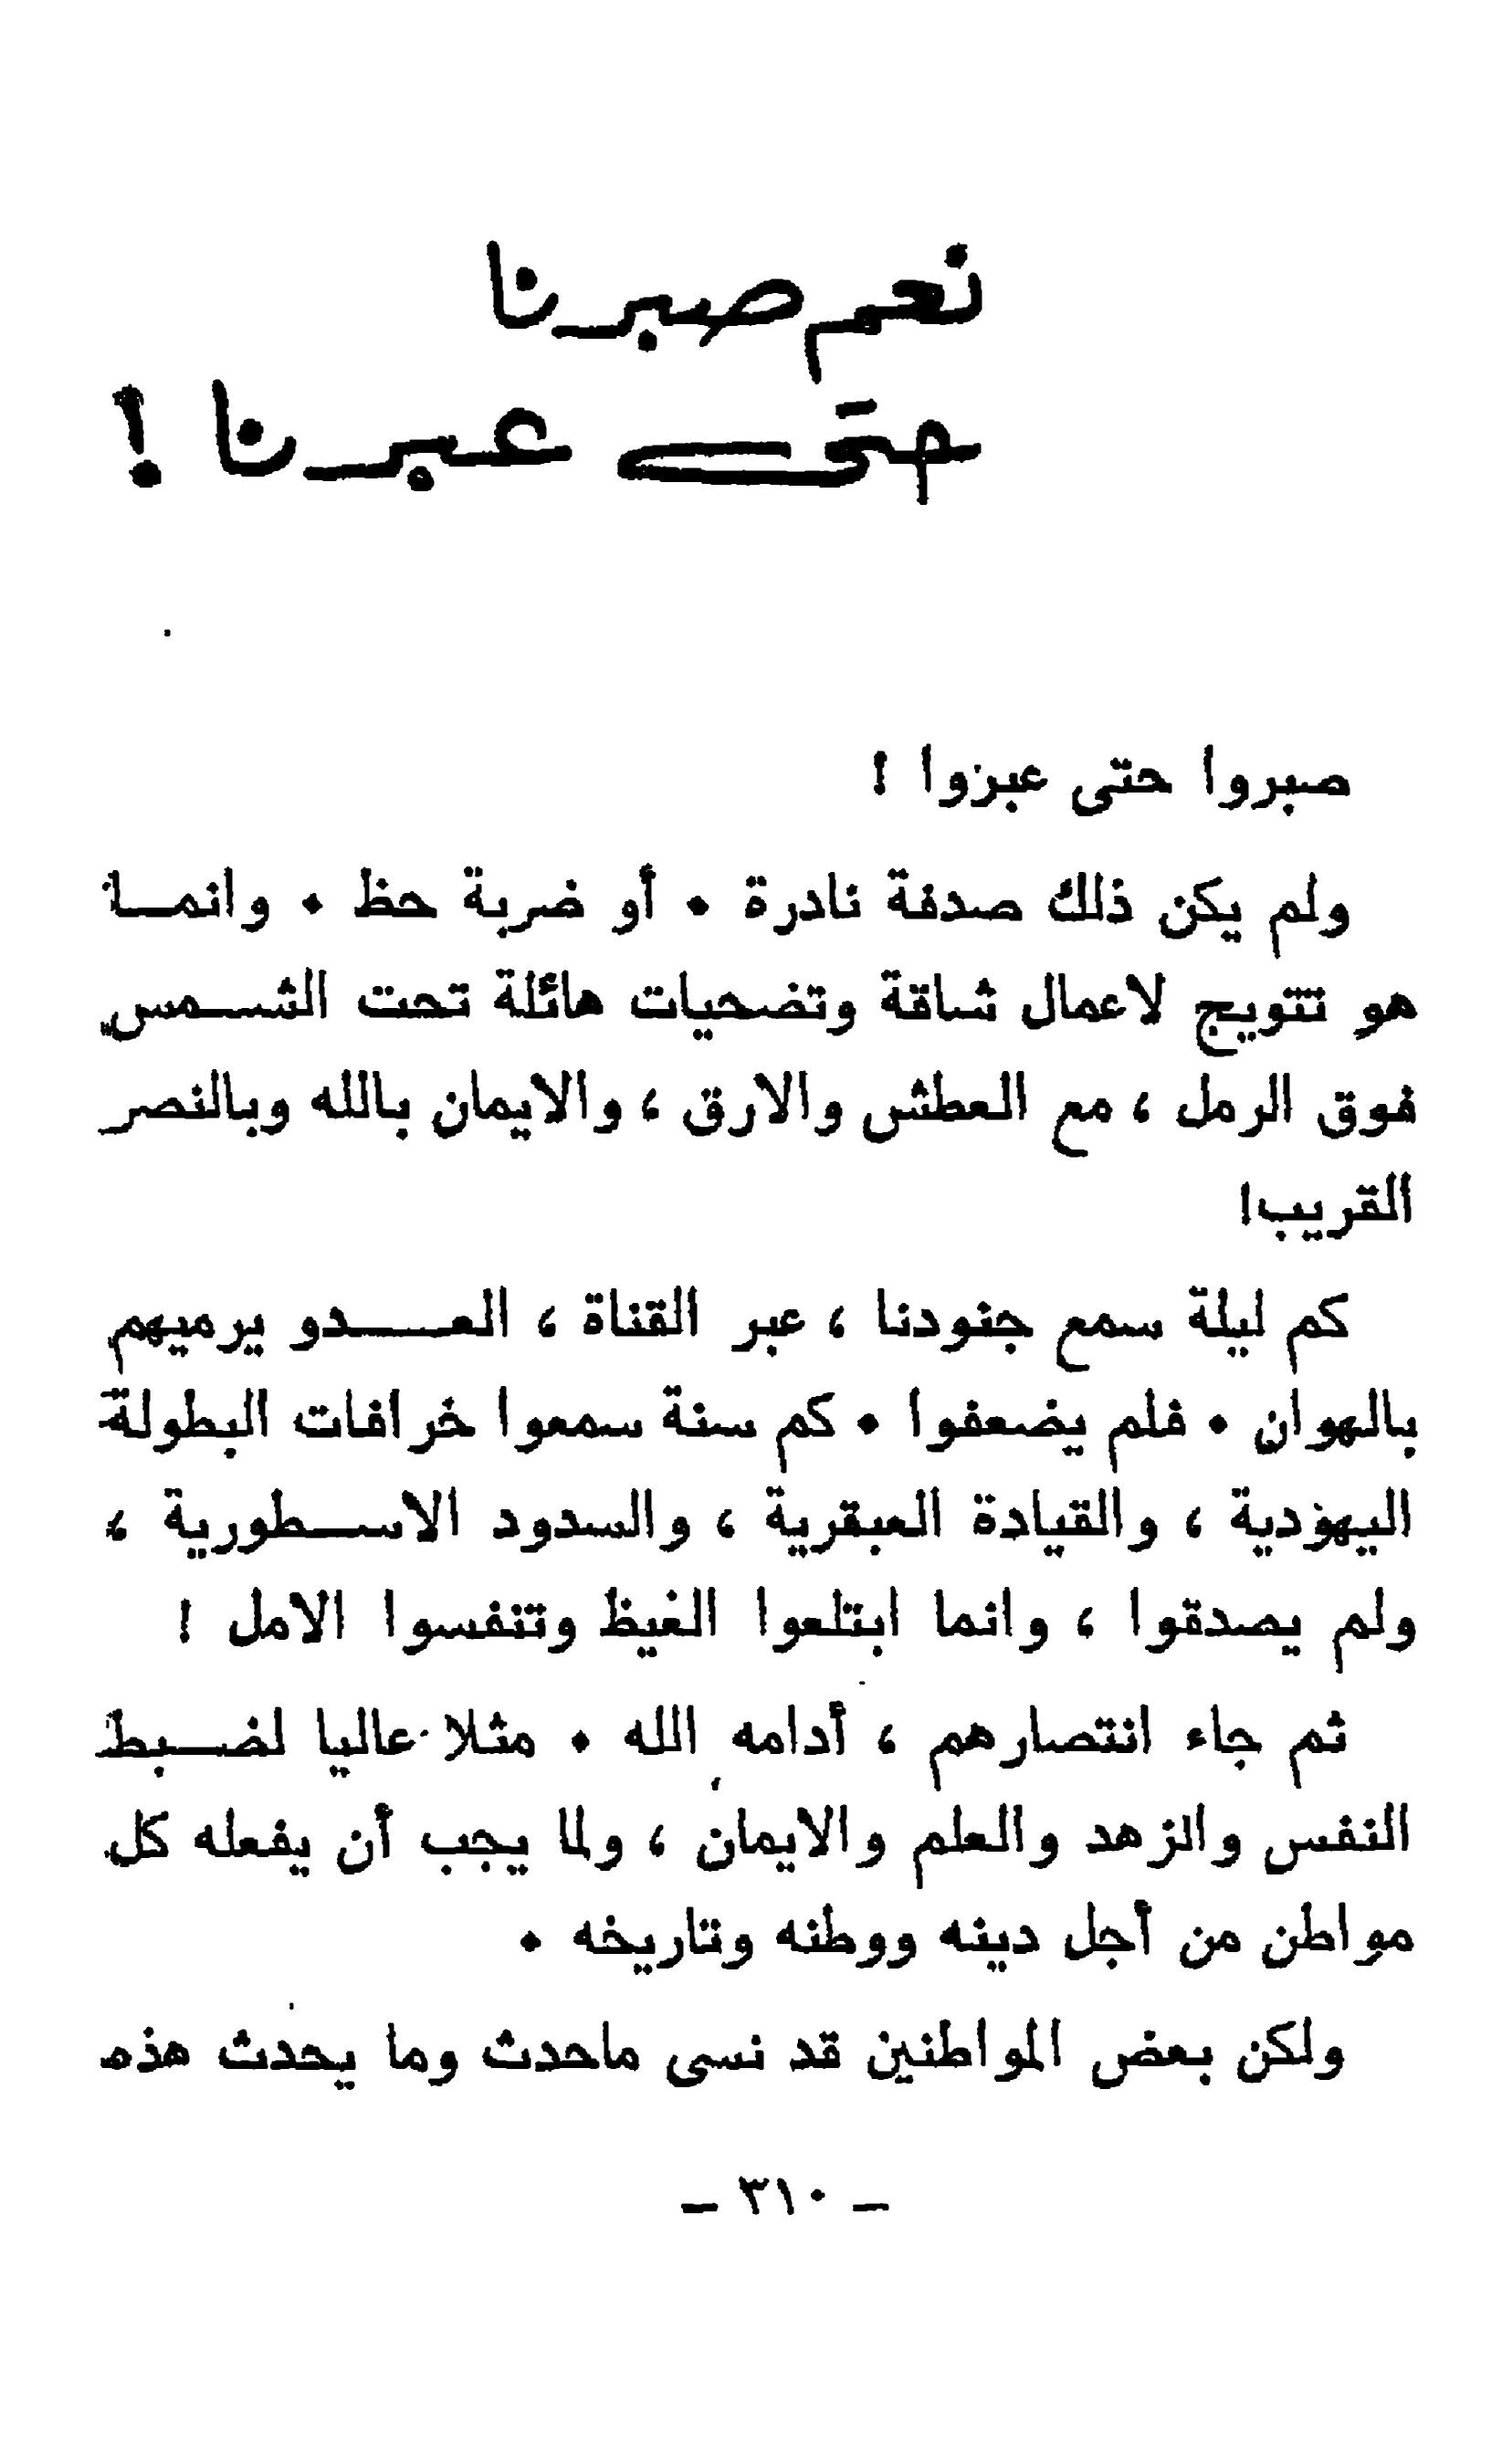 نعم صبرنا
حتى عبرنا !
صبروا حتى عبروا !
ولم يكن ذلك صدفة نادرة . أو ضربة حظ . وانما
هو تتويج لاعمال شاقة وتضحيات هائلة تحت الشمس
فوق الرمل ، مع العطش والارق ، والايمان بالله وبالنصر
القريب!
كم ليلة سمع جنودنا ، عبر القناة ، العدو يرميهم
بالهوان . فلم يضعفوا . كم سنة سمعوا خرافات البطولة
اليهودية ، والقيادة العبقرية ، والسدود الاسطورية ،
ولم يصدقوا ، وانما ابتلعوا الغيظ وتنفسوا الامل !
ثم جاء انتصارهم ، أدامه الله . مثلا عاليا لضبط
النفس والزهد والعلم والايمان ، ولما يجب أن يفعله كل
مواطن من أجل دينه ووطنه وتاريخه .
ولكن بعض المواطنين قد نسى ماحدث وما يحدث هذه
– ٣١٠ –